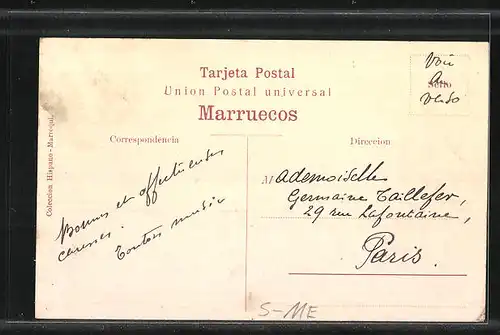 Tarjeta Postal
Union Postal universal
Marruecos
Correspondencia
Direccion
Sello
Voir
au
verso
Coleccion Hispano-Marroqui.
Bonnes et affectueuses
caresses.
Tonton
Mademoiselle
Germaine Taillefer,
29 rue Lafontaine,
Paris.
S-ME